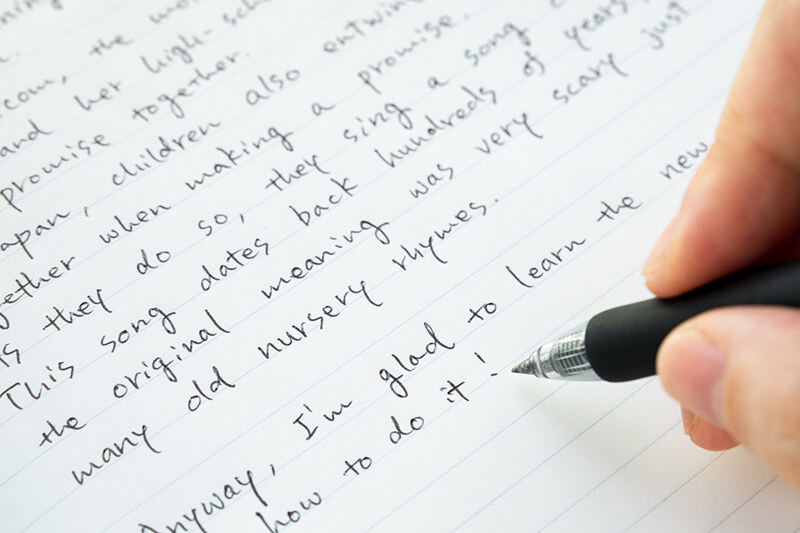 com, the mo
and her high-sch
promise together.
apan, children also entwin
gether when making a promise.
s they do so, they sing a song
This song dates back hundreds of years,
the original meaning was very scary just
many old nursery rhymes.
Anyway, I'm glad to learn the new
how to do it!